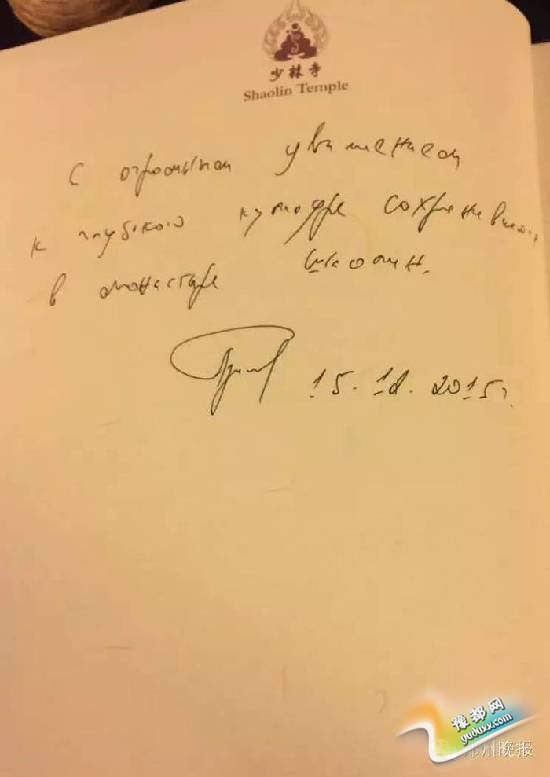 少林寺
Shaolin Temple
С огромным уважением
к глубокой культуре сохранившейся
в монастыре Шаолинь.
15.12.2015г.
豫都网
yuduxx.com
郑州晚报